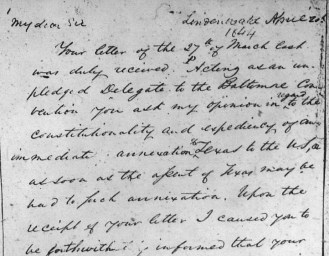 My dear Sir
Lindenwald April 20th
1844
Your letter of the 27th of March last
was duly received. Acting as an un-
pledged Delegate to the Baltimore Con-
vention you ask my opinion in regard to the
constitutionality and expediency of an
immediate annexation of Texas to the U, S,
as soon as the assent of Texas may be
had to such annexation. Upon the
receipt of your letter I caused you to
be forthwith informed that your